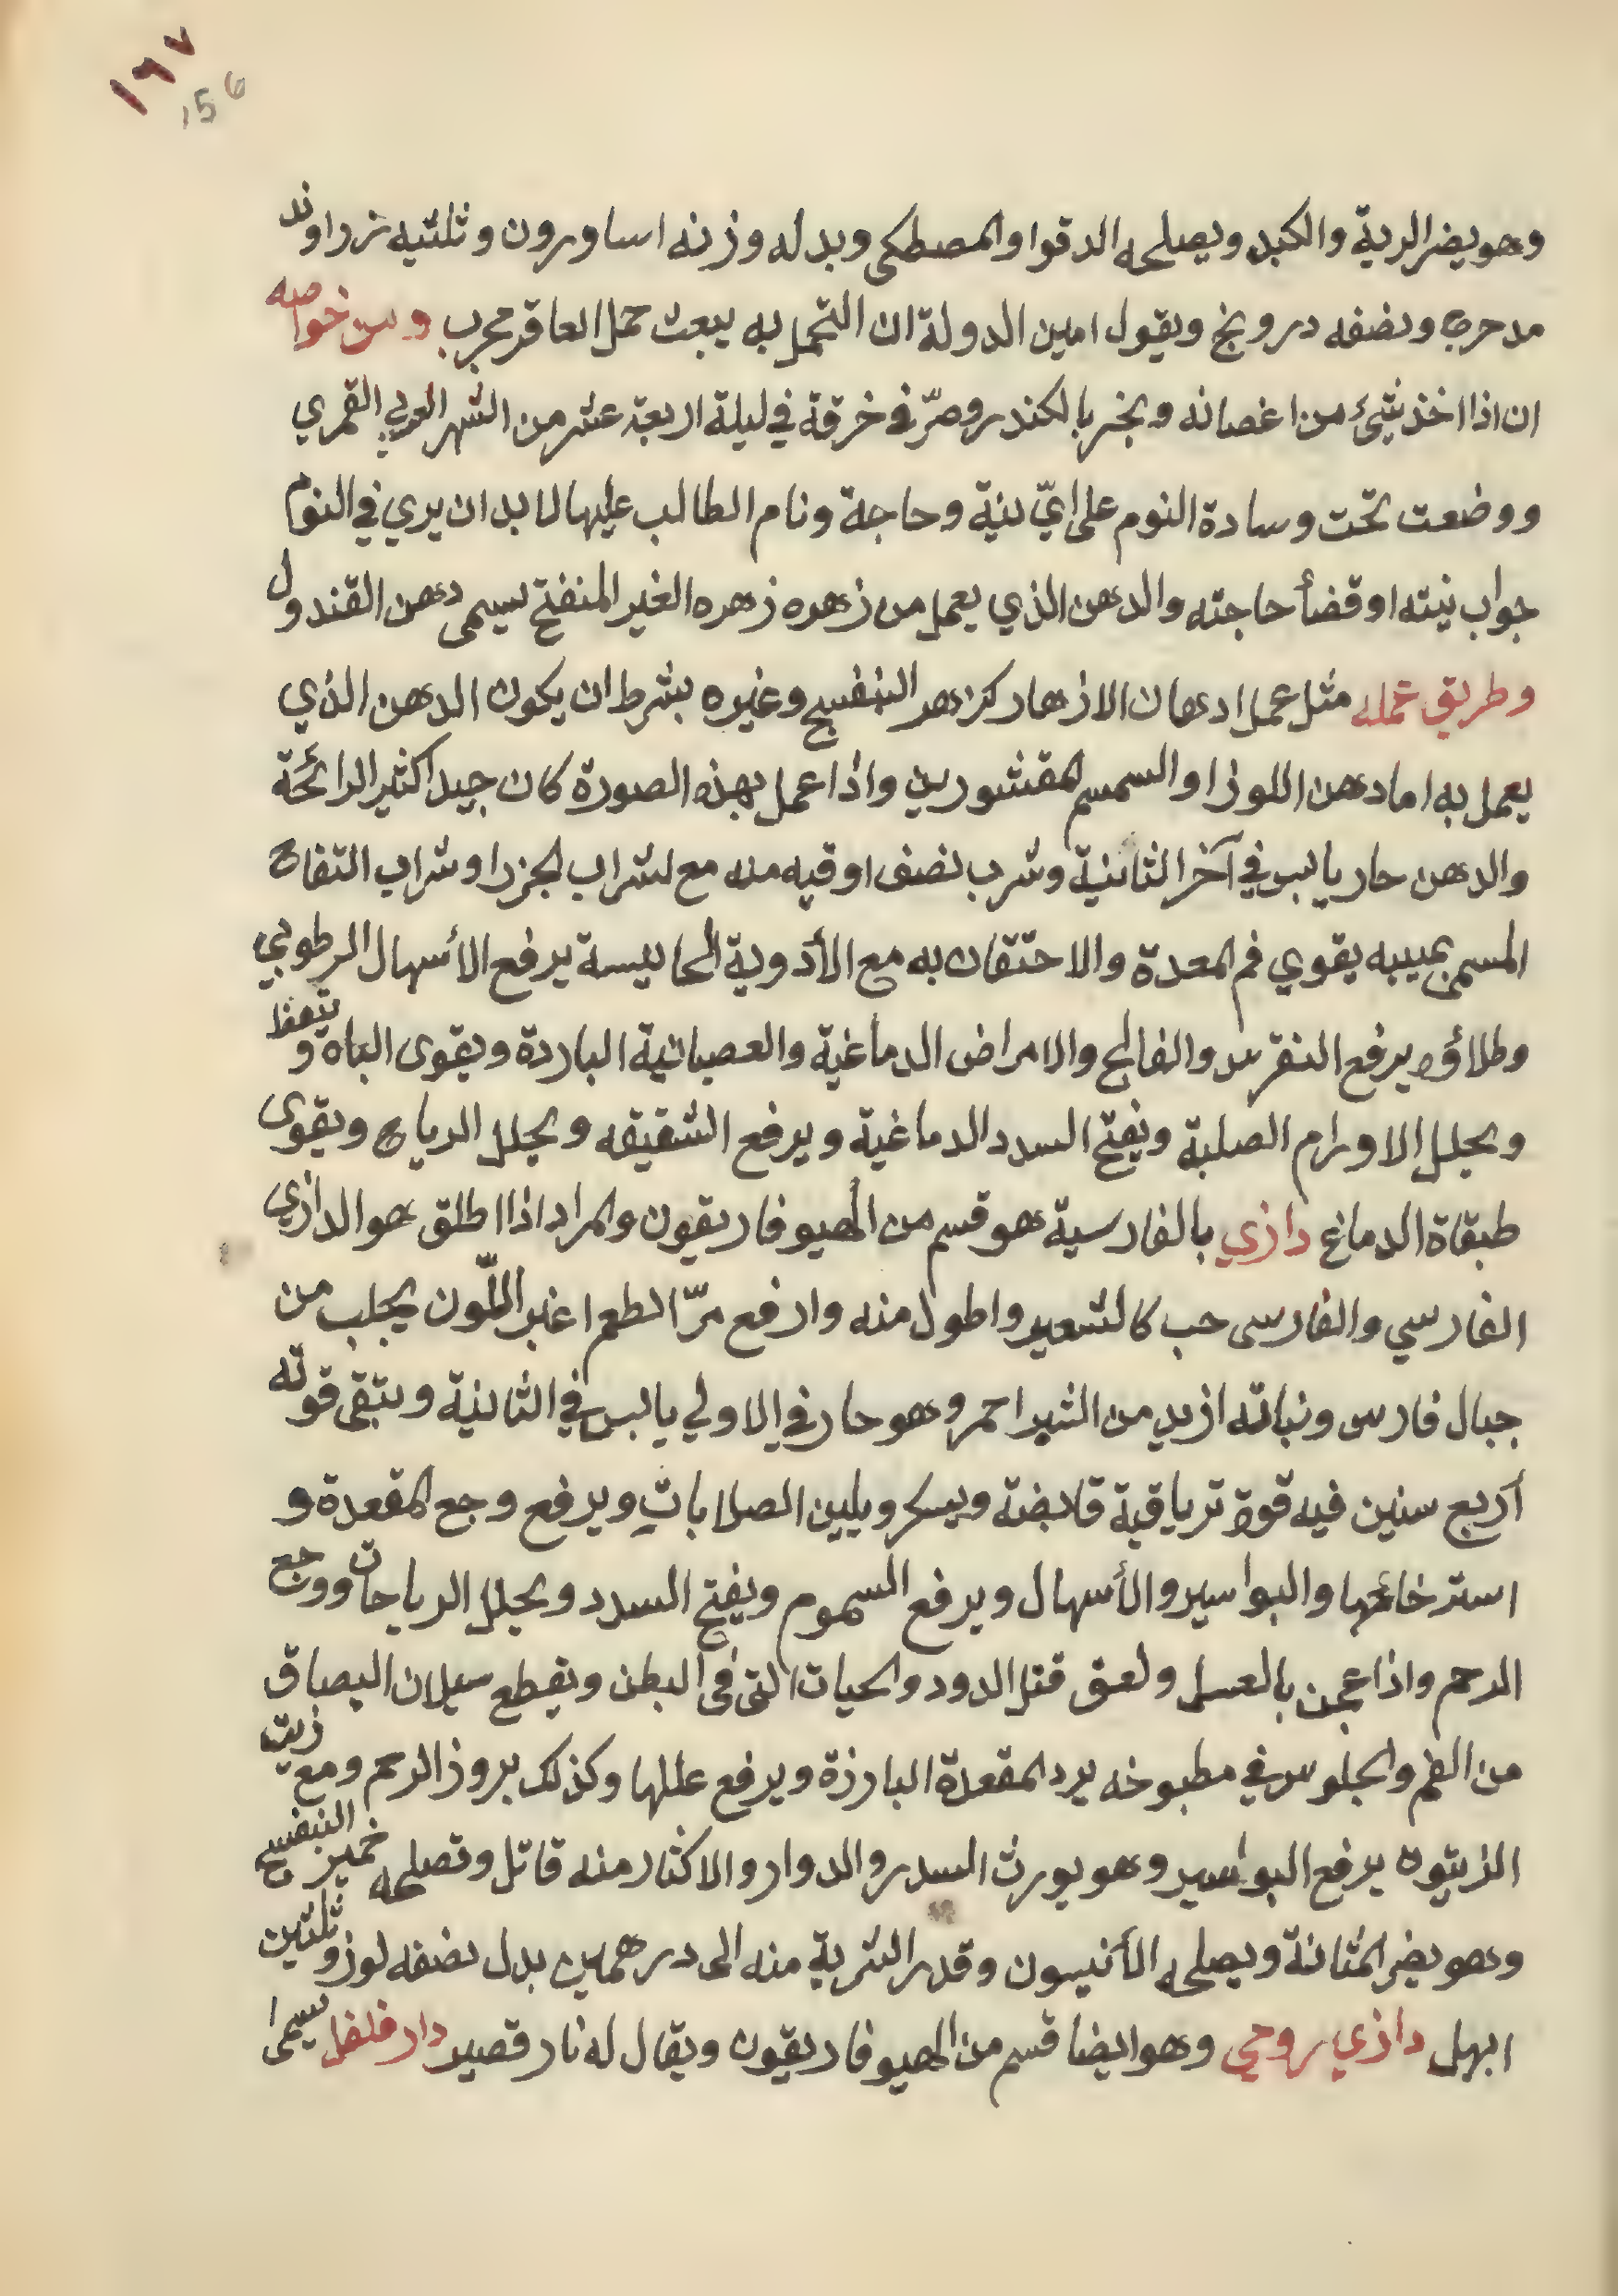 ١٦٧
156
وهو يضر الرية والكبد ويصلحه الدقوا والمصطكى وبدله وزنه اساورون وثلثيه زراوند
مدحرج ونصفه درونج ويقول امين الدولة ان التحمل به يبعث حمل العاقر مجرب ومن خواصه
ان اذا اخذ شئ من اغصانه وبخر بالكندر وصرّ في خرقة في ليلة اربعة عشر من الشهر العربي القمري
ووضعت تحت وسادة النوم على ايّ نية وحاجة ونام الطالب عليها لا بد ان يري في النوم
جواب نيته او قضأ حاجته والدهن الذي يعمل من زهره زهره الغير المنفتح يسمى دهن القندول
وطريق عمله مثل عمل ادهان الازهار كزهر البنفسج وغيره بشرط ان يكون الدهن الذي
يعمل به اما دهن اللوز او السمسم المقشورين واذا عمل بهذه الصورة كان جيدا كثير الرائحة
والدهن حار يابس في آخر الثانية وشرب نصف اوقيه منه مع شراب الجزر او شراب التفاح
المسمى بميبه يقوي فم المعدة والاحتقان به مع الأدوية الحابيسة يرفع الأسهال الرطوبي
وطلاؤه يرفع النقرس والفالج والامراض الدماغية والعصبانية الباردة ويقوى الباه و ينعظ
ويحلل الاورام الصلبة ويفتح السدد الدماغية ويرفع الشقيقه ويحلل الرياح ويقوى
طبقاة الدماغ دازي بالفارسية هو قسم من الهيوفاريقون والمراد اذا اطلق هو الدازي
الفارسي والفارسى حب كالشعير واطول منه وارفع مرّ الطعم اغبر اللّون يجلب من
جبال فارس ونباته ازيد من الشبر احمر وهو حار في الاولي يابس في الثانية وتبقى قوته
أربع سنين فيه قوة ترياقية قابضة ويسكر ويلين الصلابات ويرفع وجع المقعدة و
استرخائها والبواسير والأسهال ويرفع السموم ويفتح السدد ويحلل الرياحات ووجع
الرحم واذا عجن بالعسل ولعق قتل الدود والحيات التى فى البطن ويقطع سيلان البصاق
من الفم والجلوس في مطبوخه يرد المقعدة البارزة ويرفع عللها وكذلك بروز الرحم ومع زيت
الزيتون يرفع البواسير وهو يورث السدر والدوار والاكثار منه قاتل وتصلحه خمير البنفسج
وهو يضر المثانة ويصلحه الأنيسون وقدر الشربة منه الى درهمين بدل نصفه لوز وثلثين
ابهل دازي روحي وهو ايضا قسم من الهيوفاريقون ويقال له نار قصير دار فلفل يسمى